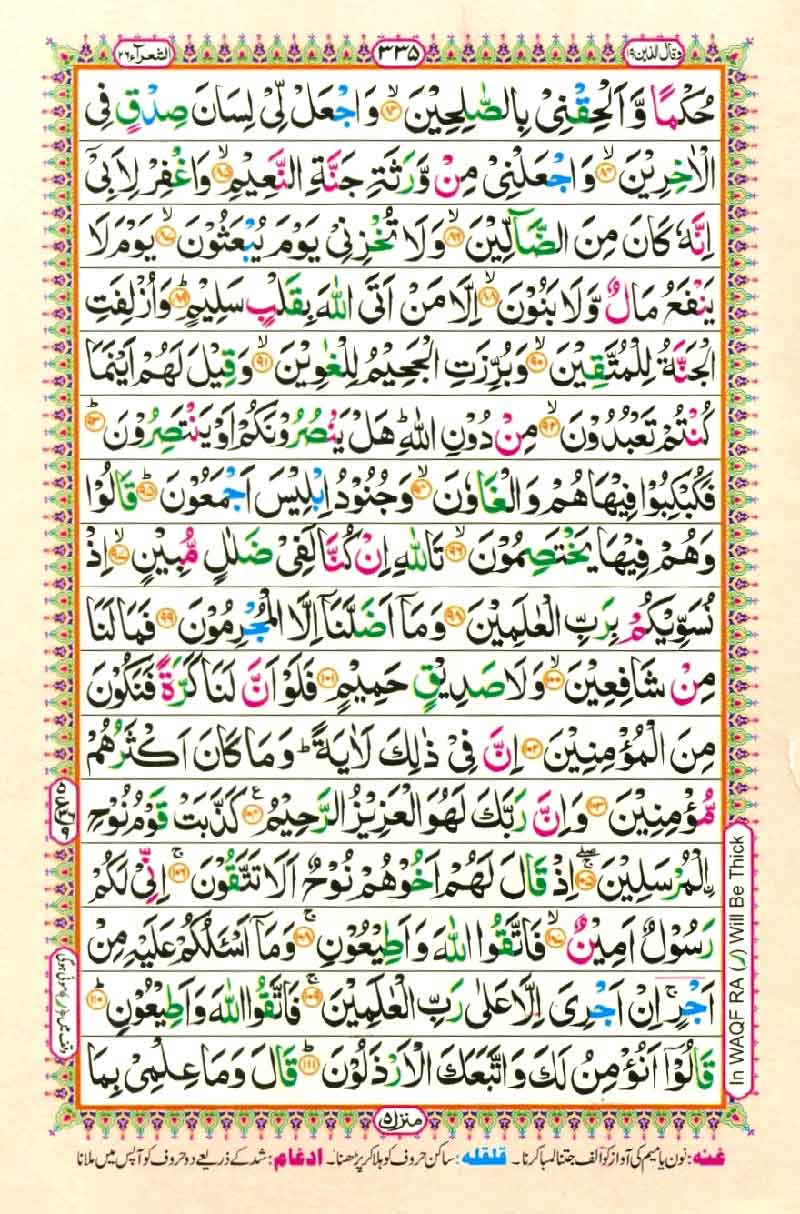 وقال الذین ١٩
٣٣٥
الشعرآء ٢٦
حُكْمًا وَّاَلْحِقْنِیْ بِالصّٰلِحِیْنَ ۙ﴿۸۳﴾ وَاجْعَلْ لِّیْ لِسَانَ صِدْقٍ فِی
الْاٰخِرِیْنَ ۙ﴿۸۴﴾ وَاجْعَلْنِیْ مِنْ وَّرَثَةِ جَنَّةِ النَّعِیْمِ ۙ﴿۸۵﴾ وَاغْفِرْ لِاَبِیْۤ
اِنَّهٗ كَانَ مِنَ الضَّآلِّیْنَ ۙ﴿۸۶﴾ وَلَا تُخْزِنِیْ یَوْمَ یُبْعَثُوْنَ ۙ﴿۸۷﴾ یَوْمَ لَا
یَنْفَعُ مَالٌ وَّلَا بَنُوْنَ ۙ﴿۸۸﴾ اِلَّا مَنْ اَتَی اللّٰهَ بِقَلْبٍ سَلِیْمٍ ؕ﴿۸۹﴾ وَاُزْلِفَتِ
الْجَنَّةُ لِلْمُتَّقِیْنَ ۙ﴿۹۰﴾ وَبُرِّزَتِ الْجَحِیْمُ لِلْغٰوِیْنَ ۙ﴿۹۱﴾ وَقِیْلَ لَهُمْ اَیْنَمَا
كُنْتُمْ تَعْبُدُوْنَ ۙ﴿۹۲﴾ مِنْ دُوْنِ اللّٰهِ ؕ هَلْ یَنْصُرُوْنَكُمْ اَوْ یَنْتَصِرُوْنَ ؕ﴿۹۳﴾
فَكُبْكِبُوْا فِیْهَا هُمْ وَالْغَاوٗنَ ۙ﴿۹۴﴾ وَجُنُوْدُ اِبْلِیْسَ اَجْمَعُوْنَ ؕ﴿۹۵﴾ قَالُوْا
وَهُمْ فِیْهَا یَخْتَصِمُوْنَ ۙ﴿۹۶﴾ تَاللّٰهِ اِنْ كُنَّا لَفِیْ ضَلٰلٍ مُّبِیْنٍ ۙ﴿۹۷﴾ اِذْ
نُسَوِّیْكُمْ بِرَبِّ الْعٰلَمِیْنَ ﴿۹۸﴾ وَمَاۤ اَضَلَّنَاۤ اِلَّا الْمُجْرِمُوْنَ ﴿۹۹﴾ فَمَا لَنَا
مِنْ شَافِعِیْنَ ۙ﴿۱۰۰﴾ وَلَا صَدِیْقٍ حَمِیْمٍ ﴿۱۰۱﴾ فَلَوْ اَنَّ لَنَا كَرَّةً فَنَكُوْنَ
مِنَ الْمُؤْمِنِیْنَ ﴿۱۰۲﴾ اِنَّ فِیْ ذٰلِكَ لَاٰیَةً ؕ وَمَا كَانَ اَكْثَرُهُمْ
مُّؤْمِنِیْنَ ﴿۱۰۳﴾ وَاِنَّ رَبَّكَ لَهُوَ الْعَزِیْزُ الرَّحِیْمُ ﴿۱۰۴﴾ كَذَّبَتْ قَوْمُ نُوْحِ
ِ۟الْمُرْسَلِیْنَ ۚۖ﴿۱۰۵﴾ اِذْ قَالَ لَهُمْ اَخُوْهُمْ نُوْحٌ اَلَا تَتَّقُوْنَ ۚ﴿۱۰۶﴾ اِنِّیْ لَكُمْ
رَسُوْلٌ اَمِیْنٌ ۙ﴿۱۰۷﴾ فَاتَّقُوا اللّٰهَ وَاَطِیْعُوْنِ ۚ﴿۱۰۸﴾ وَمَاۤ اَسْـَٔلُكُمْ عَلَیْهِ مِنْ
اَجْرٍ ۚ اِنْ اَجْرِیَ اِلَّا عَلٰی رَبِّ الْعٰلَمِیْنَ ۚ﴿۱۰۹﴾ فَاتَّقُوا اللّٰهَ وَاَطِیْعُوْنِ ؕ﴿۱۱۰﴾
قَالُوْۤا اَنُؤْمِنُ لَكَ وَاتَّبَعَكَ الْاَرْذَلُوْنَ ؕ﴿۱۱۱﴾ قَالَ وَمَا عِلْمِیْ بِمَا
In WAQF RA (ر) Will Be Thick
منزل ۵
غنه: نون یا میم کی آواز کو الف جتنا لمبا کرنا۔ قلقله: ساکن حروف کو ہلا کر پڑھنا۔ ادغام: شد کے ذریعے دو حروف کو آپس میں ملانا